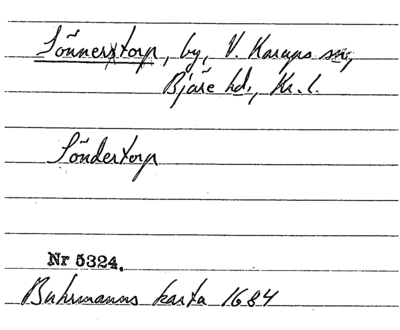 Sönnerstorp, by, V. Karups sn,
Bjäre hd., Kr. l.
Söndertorp
Nr 5324.
Buhrmanns karta 1684